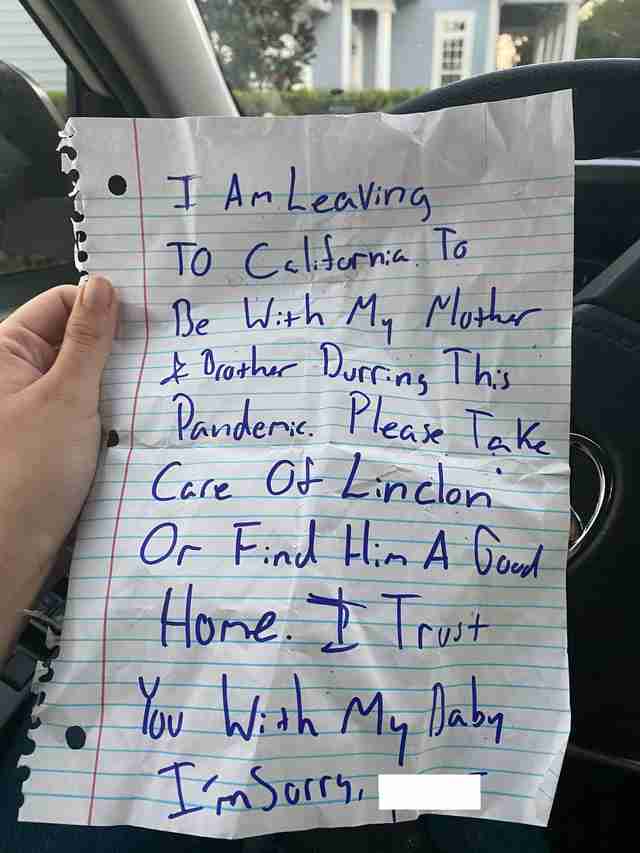 I Am Leaving
To California. To
Be With My Mother
& Brother Durring This
Pandemic. Please Take
Care Of Linclon
Or Find Him A Good
Home. I Trust
You With My Baby
I'm Sorry,